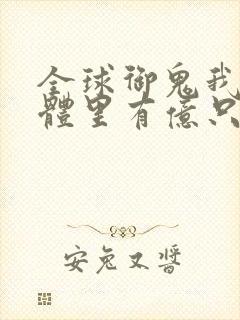 全球御鬼我
體里有億只
安兔又醬